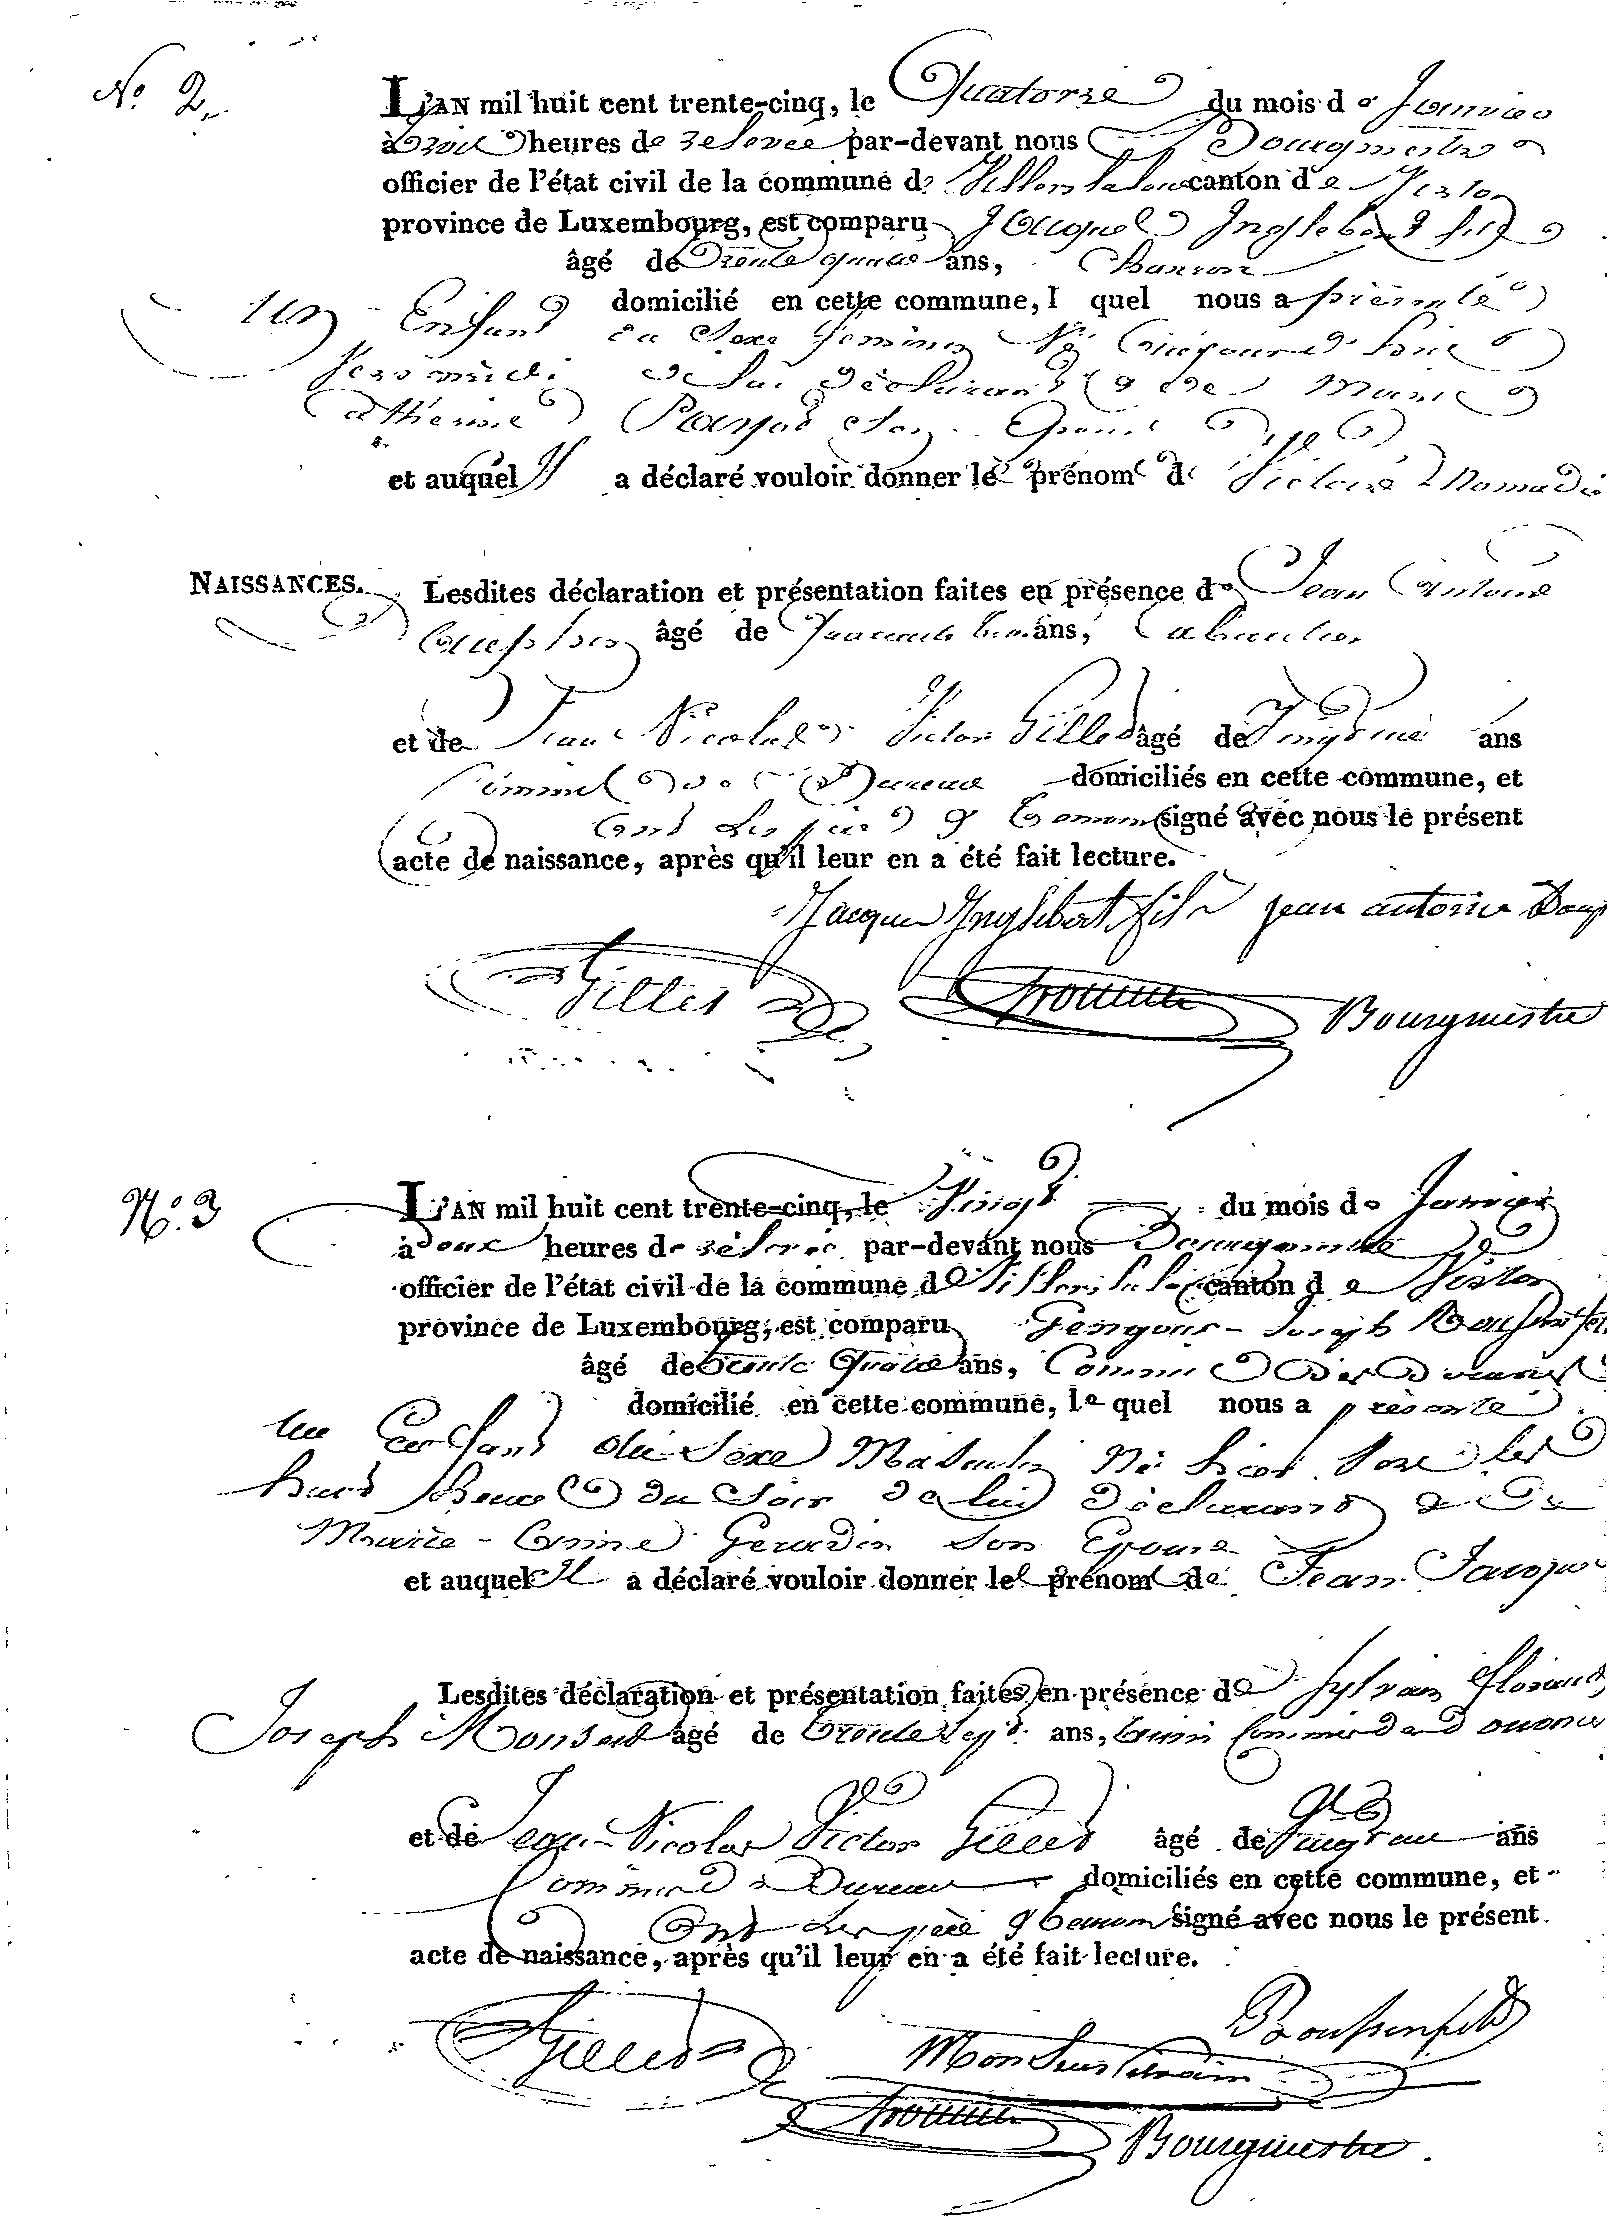 N.º 2
L'AN mil huit cent trente-cinq, le Quatorze du mois de Janvier
à trois heures de relevée par-devant nous Bourgmestre
officier de l'état civil de la commune de Villers la loue canton de Virton
province de Luxembourg, est comparu Jacques Inglebert fils
âgé de trente quatre ans, Charron
domicilié en cette commune, l quel nous a présenté
un Enfant du Sexe féminin Né
de lui déclarant & de Marie
Catherine son Epouse
et auquel il a déclaré vouloir donner le prénom de Victoire
NAISSANCES.
Lesdites déclaration et présentation faites en présence de Jean Antoine
âgé de ans, Cabaretier
et de Jean Nicolas Victor Gilles âgé de Vingt ans
Commis de Bureau domiciliés en cette commune, et
ont les père & témoins signé avec nous le présent
acte de naissance, après qu'il leur en a été fait lecture.
Jacques Inglebert fils jean antoine
Gilles Bourgmestre
N.º 3
L'AN mil huit cent trente-cinq, le Vingt du mois de Janvier
à deux heures de relevée par-devant nous Bourgmestre
officier de l'état civil de la commune de Villers la loue canton de Virton
province de Luxembourg, est comparu Gengoux - Joseph
âgé de trente Quatre ans, Commis des Douanes
domicilié en cette commune, le quel nous a présenté
un Enfant du Sexe Masculin Né hier Sur les
huit heures du Soir de lui déclarant & de
Marie - Anne Gerardin son Epouse
et auquel il a déclaré vouloir donner le prénom de Jean Jacques
Lesdites déclaration et présentation faites en présence de Sylvain Florent
Joseph Monseur âgé de trente sept ans, Commis des douanes
et de Jean - Nicolas Victor Gilles âgé de Vingt ans
Commis de Bureau domiciliés en cette commune, et
Ont les père & témoins signé avec nous le présent
acte de naissance, après qu'il leur en a été fait lecture.
Gilles Monseur Silvain
Bourgmestre